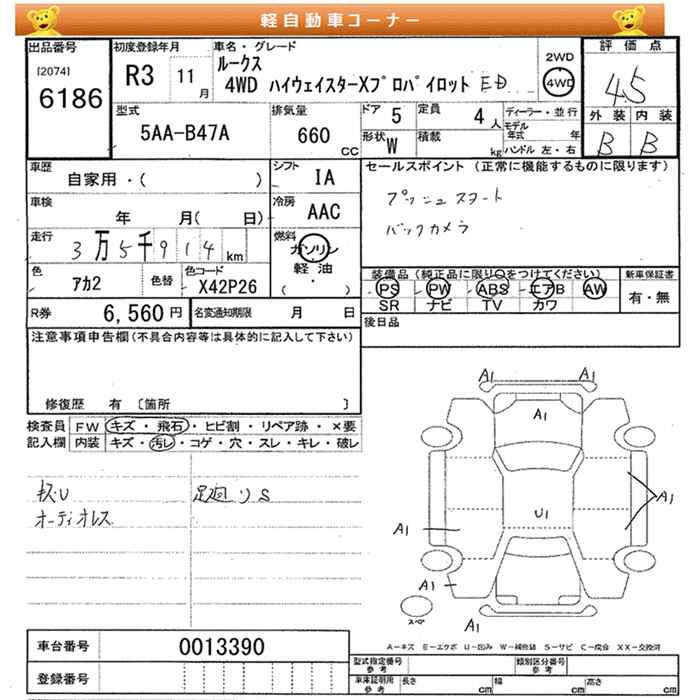 軽自動車コーナー
出品番号 初度登録年月 車名・グレード 評価点
[2074] 6186
R3 11月
ルークス
4WD ハイウェイスターXプロパイロット ED
2WD
4WD
4.5
型式 排気量 ドア 5 定員 4人 ディーラー・並行 外装 内装
5AA-B47A 660 CC
モデル年式 年
形状 W 積載 kg ハンドル 左・右
B B
車歴 シフト セールスポイント(正常に機能するものに限ります)
自家用・( ) IA
プッシュスタート
車検 冷房
年 月( 日) AAC
バックカメラ
走行 燃料
3万5千914km ガソリン
軽油
( ・ )
色 色替 色コード
アカ2 X42P26
装備品(純正品に限り○をつけてください) 新車保証書
PS PW ABS エアB AW 有・無
SR ナビ TV カワ
R券 6,560円 名変通知期限 月 日
後日品
注意事項申告欄(不具合内容等は具体的に記入して下さい)
修復歴 有 〔箇所 〕
検査員 FW キズ・飛石・ヒビ割・リペア跡・×要
記入欄 内装 キズ・汚レ・コゲ・穴・スレ・キレ・破レ
足廻りS
オーディオレス
A1 A1
A1
U1
A1
A1
A1
スペ
A=キズ E=エクボ U=凹み W=補修跡 S=サビ C=腐食 XX=交換済
車台番号 0013390
登録番号
型式指定番号 参考 類別区分番号 参考
車庫証明用 参考 長さ cm 幅 cm 高さ cm